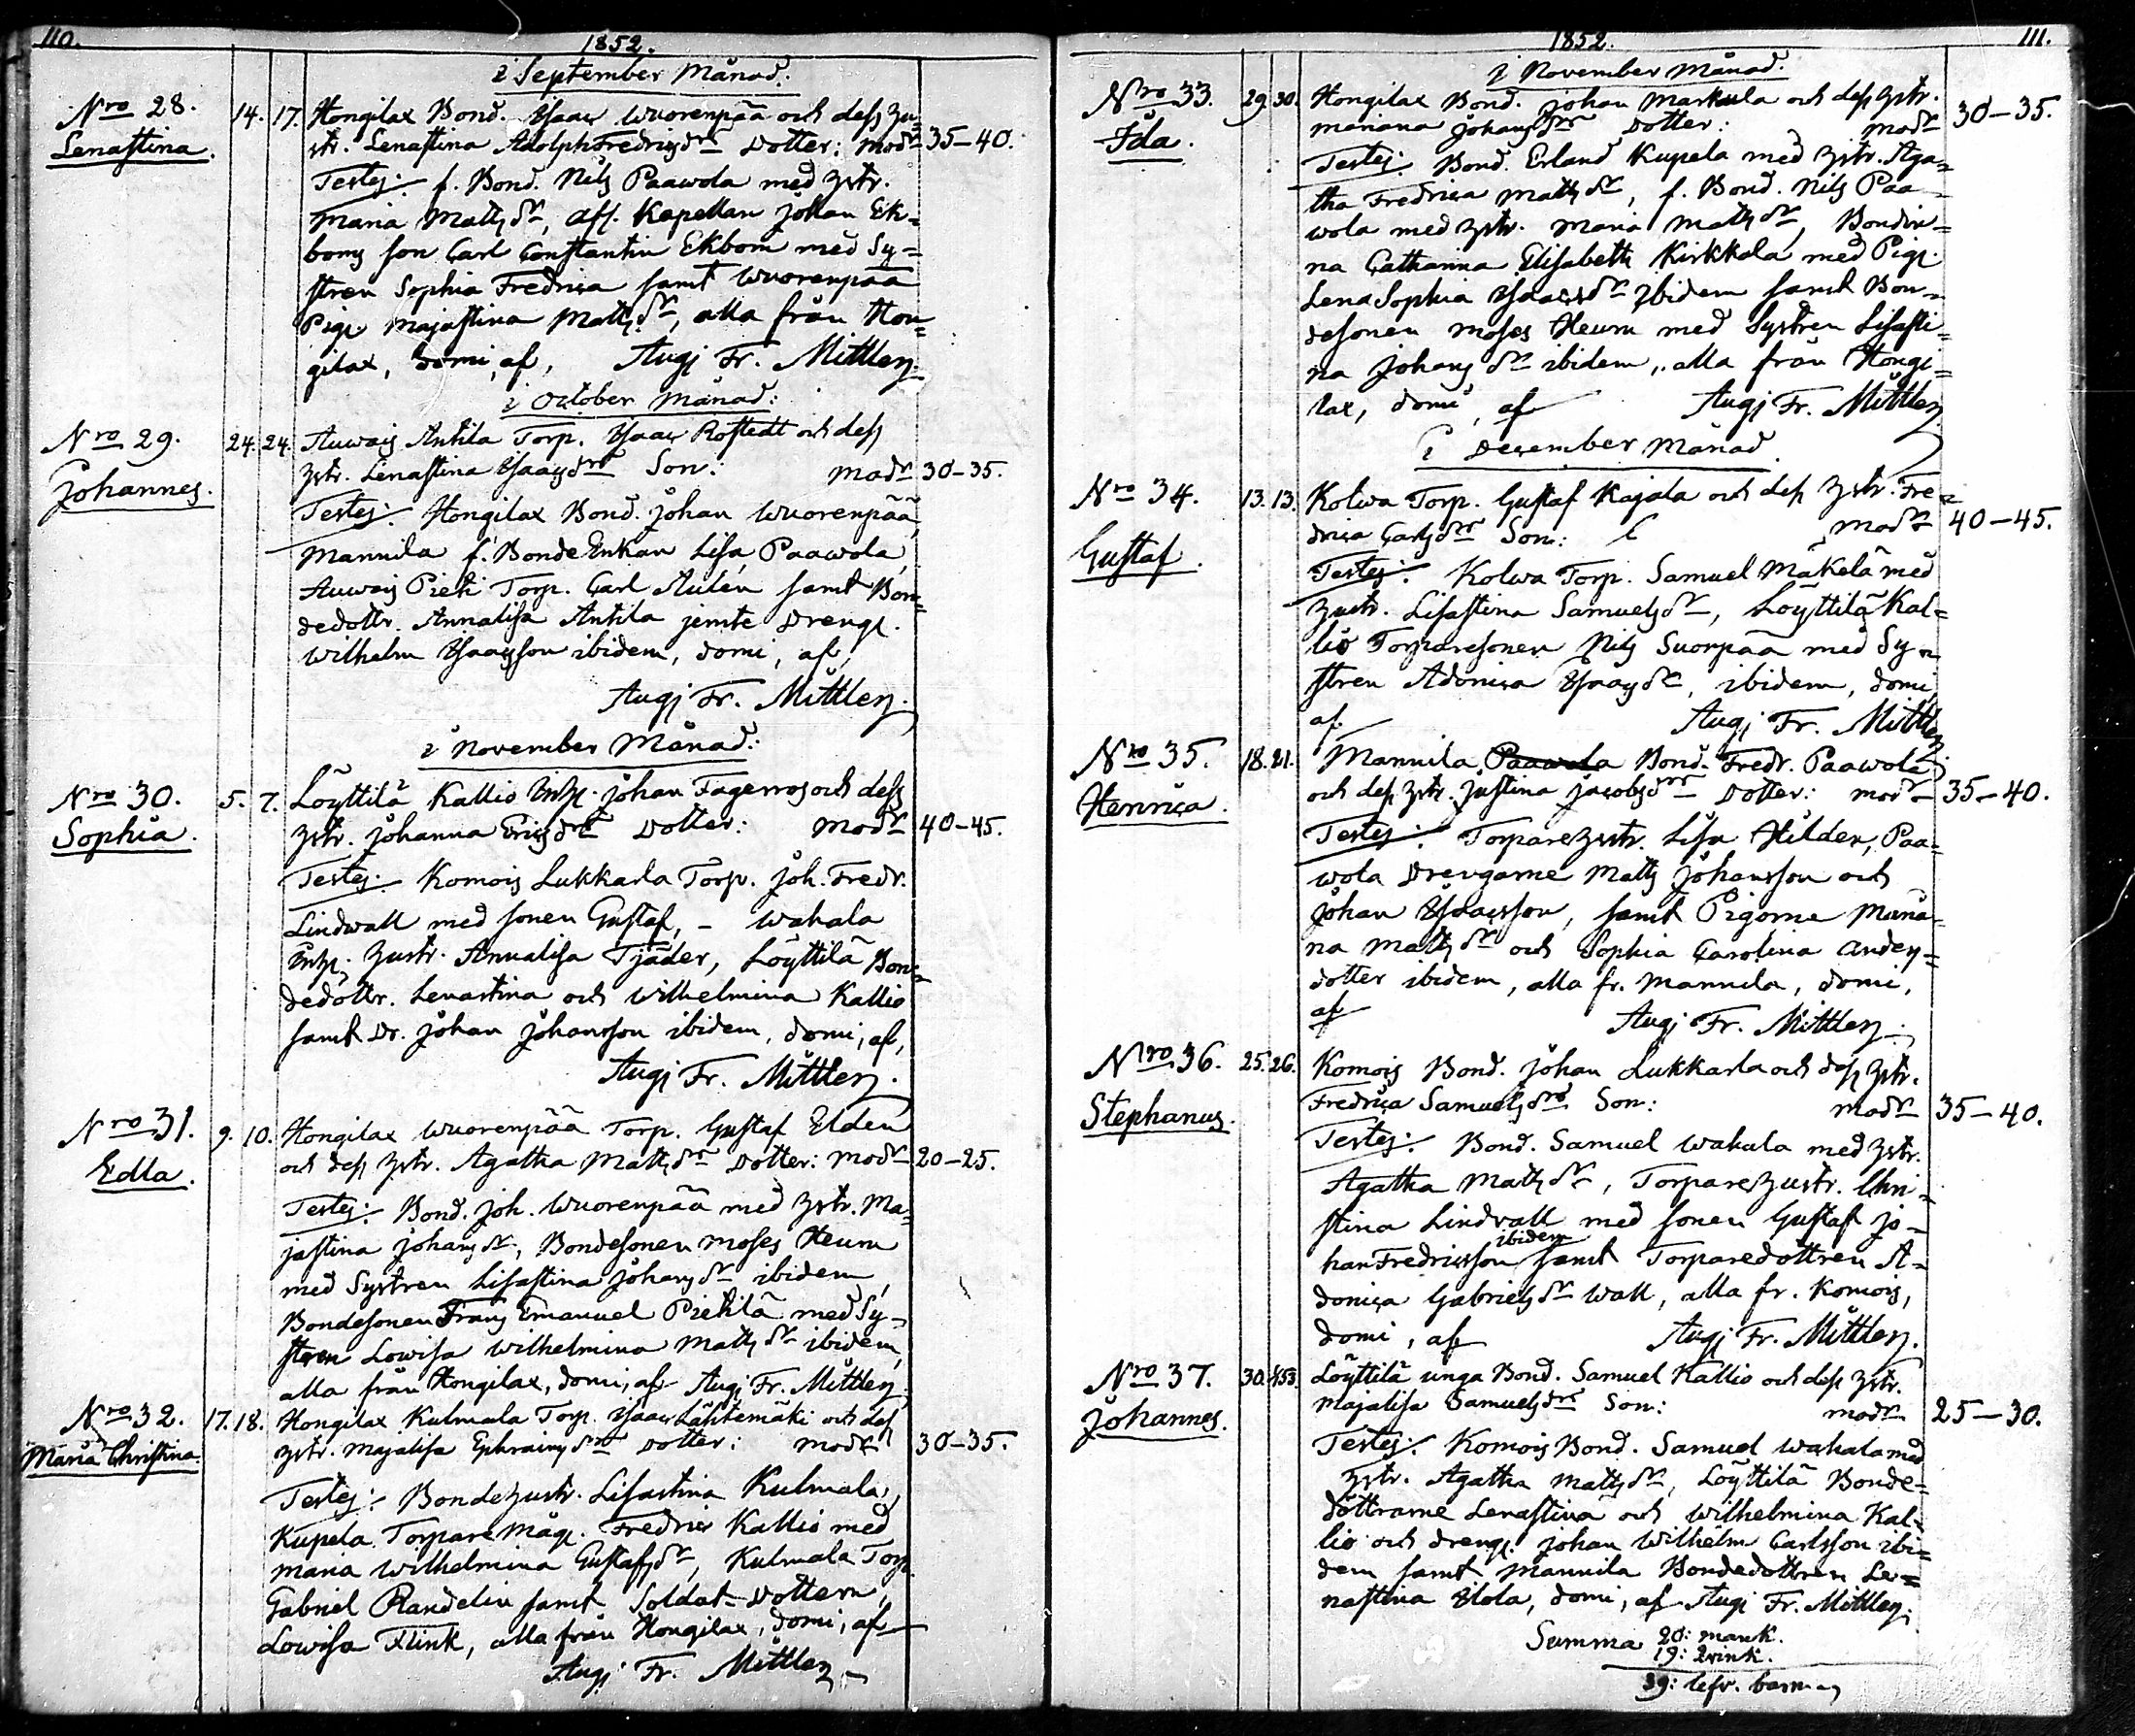 110.
1852.
i September Månad.
Nro 28. 14. 17. Hongilax Bond. Isaac Wuorenpää och dess hu-
Lenastina. str. Lenastina AdolphFredricsdr Dotter: modr 35–40.
Testes: f. Bond. Nils Paawola med hstr.
Maria Mattsdr, afl. Kapellan Johan Ek-
boms son Carl Constantin Ekbom med Sy-
stren Sophia Fredrica samt Wuorenpää
Pig. Majastina Mattsdr, alla från Hon-
gilax, domi, af, Augs Fr. Mittler.
i October Månad:
Nro 29. 24. 24. Auwais Antila Torp. Isaac Rostedt och dess
Johannes. hstr. Lenastina Isaacsdr Son: modr 30–35.
Testes: Hongilax Bond. Johan Wuorenpää,
Mannila f. BondeEnkan Lisa Paawola,
Auwais Pieti Torp. Carl Aulén samt Bon-
dedottr. Annalisa Antila jemte Dreng.
Wilhelm Isaacsson ibidem, domi, af,
Augs Fr. Mittler.
i November Månad:
Nro 30. 5. 7. Löyttilä Kallio Inh. Johan Fagerros och dess
Sophia. hstr. Johanna Ericsdr Dotter: modr 40–45.
Testes: Komois Lukkarla Torp. Joh. Fredr.
Lindwall med sonen Gustaf, – Wahala
Inh. hustr. Annalisa Tjäder, Löyttilä Bon-
dedottr. Lenastina och Wilhelmina Kallio
samt Dr. Johan Johansson ibidem, domi, af,
Augs Fr. Mittler.
Nro 31. 9. 10. Hongilax Wuorenpää Torp. Gustaf Elden
Edla. och dess hstr. Agatha Mattsdr Dotter: modr 20–25.
Testes: Bond. Joh. Wuorenpää med hstr. Ma-
jastina Johansdr, Bondesonen Moses Heurn
med Systren Lisastina Johansdr ibidem,
Bondesonen Frans Emanuel Pietilä med Sy-
stren Lowisa Wilhelmina Mattsdr ibidem,
alla från Hongilax, domi, af Augs Fr. Mittler.
Nro 32. 17. 18. Hongilax Kulmala Torp. Isaac Lähtemäki och dess
Maria Christina. hstr. Majalisa Ephraimsdr Dotter: modr 30–35.
Testes: Bondehustr. Lisastina Kulmala,
Kupela Torpare Måg. Fredric Kallio med
Maria Wilhelmina Gustafsdr, Kulmala Torp.
Gabriel Randelin samt Soldat-Dottern
Lowisa Flink, alla från Hongilax, domi, af
Augs Fr. Mittler
1852.
111.
i November Månad.
Nro 33. 29. 30. Hongilax Bond. Johan Markula och dess hstr.
Ida. Mariana Johansdr Dotter: modr 30–35.
Testes: Bond. Erland Kupela med hstr. Aga-
tha Fredrica Mattsdr, f. Bond. Nils Paa-
wola med hstr. Maria Mattsdr, Bondin-
na Catharina Elisabeth Kirkkola med Pig.
LenaSophia Isaacsdr Ibidem samt Bon-
desonen Moses Heurn med Systren Lisasti-
na Johansdr ibidem, alla från Hongi-
lax, domi, af Augs Fr. Mittler.
i December Månad.
Nro 34. 13. 13. Kolwa Torp. Gustaf Kajala och dess hstr. Fre-
Gustaf. drica Carlsdr Son: modr 40–45.
Testes: Kolwa Torp. Samuel Mäkelä med
hustr. Lisastina Samuelsdr, Löyttilä Kal-
lio Torparesonen Nils Suorpää med Sy-
stren Adonica Isaacsdr, ibidem, domi,
af. Augs Fr. Mittler
Nro 35. 18. 21. Mannila, Paawola Bond. Fredr. Paawola
Henrica. och dess hstr. Justina Jacobsdr Dotter: modr 35–40.
Testes: Torparehustr. Lisa Hilden, Paa-
wola Drengarne Matts Johansson och
Johan Isaacsson, samt Pigorne Maria-
na Mattsdr och Sophia Carolina Anders-
dotter ibidem, alla fr. Mannila, domi,
af Augs Fr. Mittler.
Nro 36. 25. 26. Komois Bond. Johan Lukkarla och dess hstr.
Stephanus. Fredrica Samuelsdr Son: modr 35–40.
Testes: Bond. Samuel Wahala med hstr.
Agatha Mattsdr, Torparehustr. Chri-
stina Lindvall med sonen Gustaf Jo-
ibidem
hanFredricsson samt Torparedottren A-
donica Gabrielsdr Wall, alla fr. Komois,
domi, af Augs Fr. Mittler.
Nro 37. 30. 1/53. Löyttilä unga Bond. Samuel Kallio och dess hstr.
Johannes. Majalisa Samuelsdr Son: modr 25–30.
Testes: Komois Bond. Samuel Wahala med
hstr. Agatha Mattsdr, Löyttilä Bonde-
döttrarne Lenastina och Wilhelmina Kal-
lio och dreng. Johan Wilhelm Carlsson ibi-
dem samt Mannila Bondedottren Le-
nastina Ilola, domi, af Augs Fr. Mittler.
Summa 20: mank.
19: qvink.
39: lefv. barn